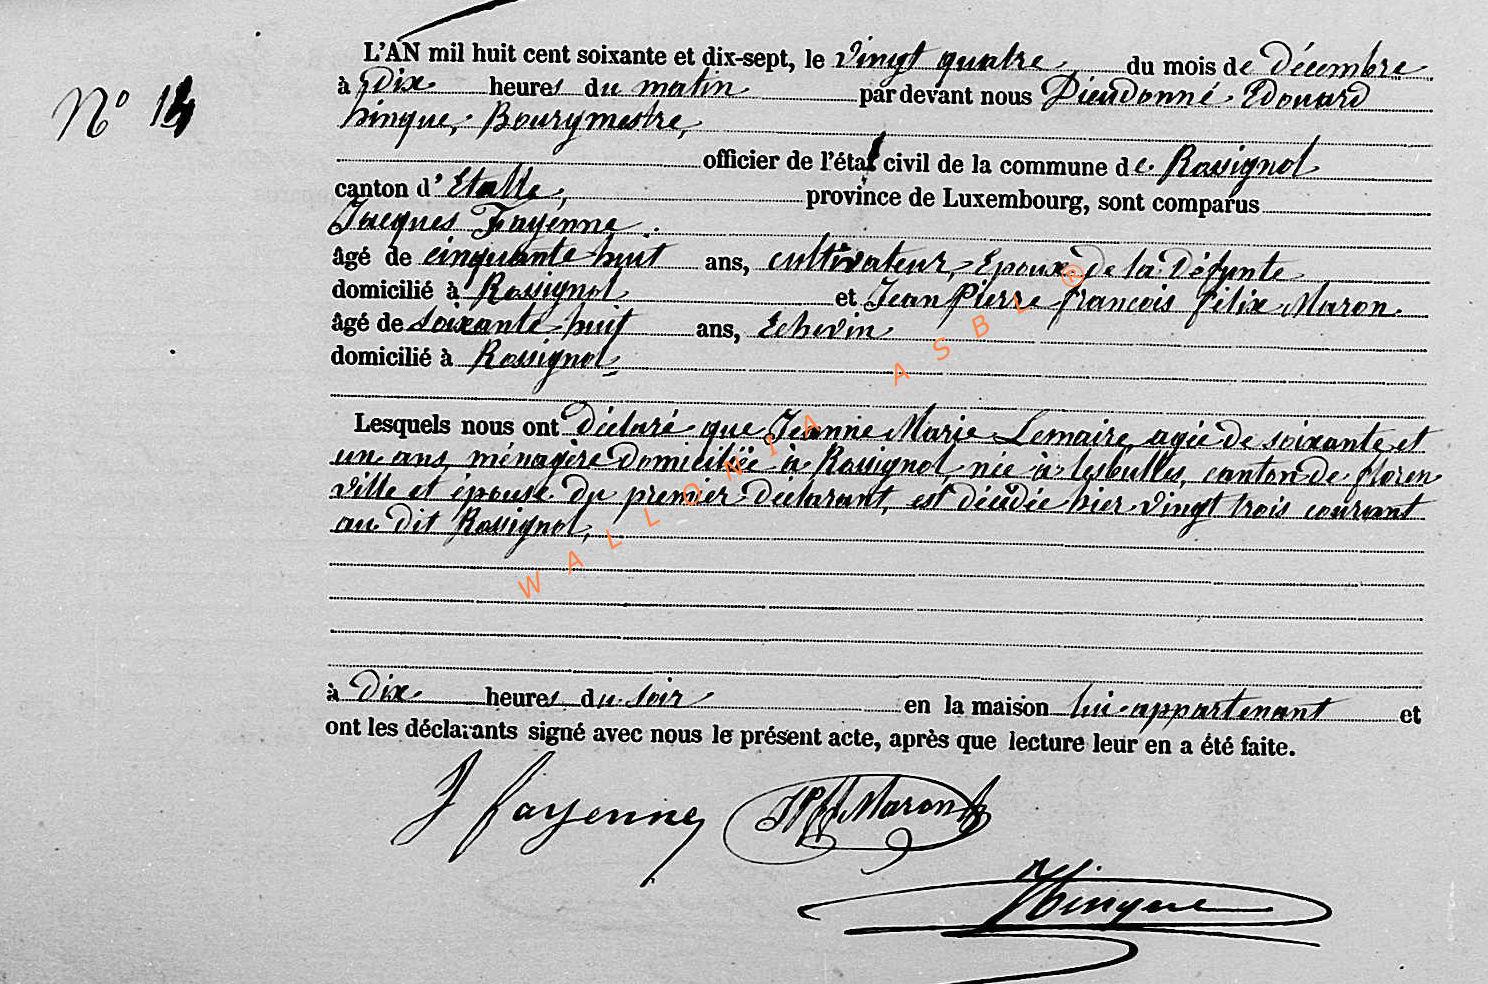 L'AN mil huit cent soixante et dix-sept, le vingt quatre du mois de Décembre
N° 14
à Dix heures du matin par devant nous Dieudonné Edouard
hinque, Bourgmestre,
officier de l'état civil de la commune de Rossignol
canton d'Etalle, province de Luxembourg, sont comparus
Jacques Fayenne
âgé de cinquante huit ans, cultivateur, Epoux de la Défunte
domicilié à Rossignol et Jean Pierre francois félix Maron.
âgé de soixante huit ans, Echevin
domicilié à Rossignol
Lesquels nous ont Déclaré que Jeanne Marie Lemaire, agée de soixante et
un ans, ménagère Domiciliée à Rossignol, née à lesbulles, canton de floren
ville et épouse du premier Déclarant, est décédée hier vingt trois courant
au dit Rossignol,
à Dix heures du soir en la maison lui appartenant et
ont les déclarants signé avec nous le présent acte, après que lecture leur en a été faite.
J fayenne JPFF Maron
hinque
WALLONIA ASBL ®